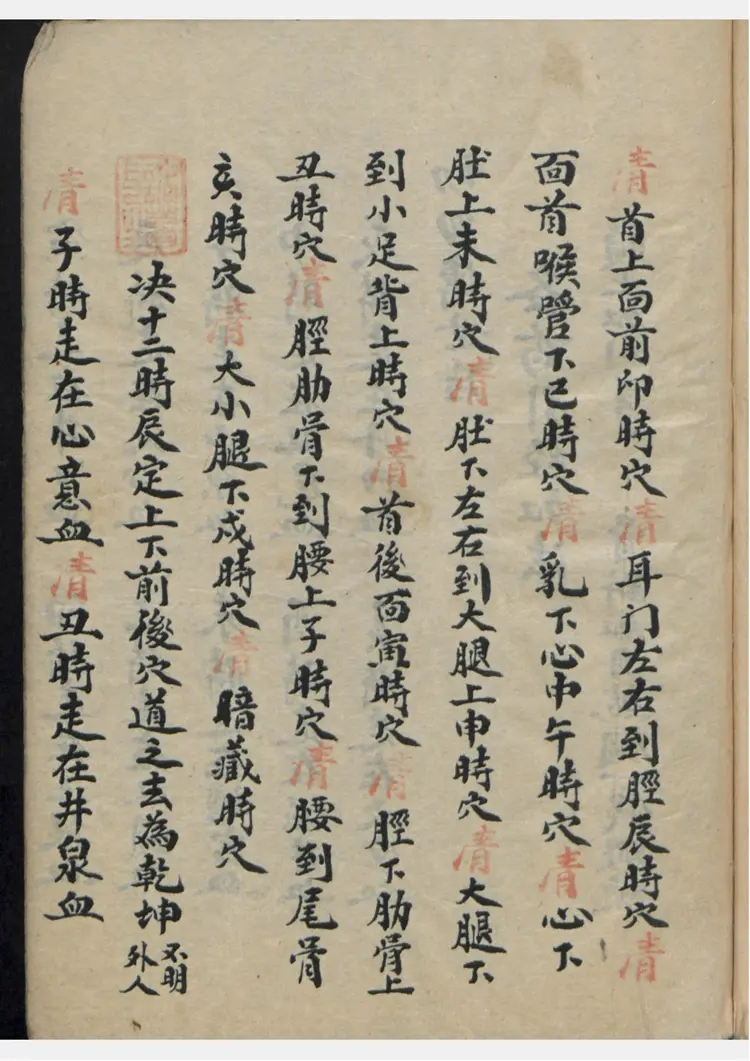 清首上面前卯時穴清耳门左右到脛辰時穴清
面首喉管下巳時穴清乳下心中午時穴清心下
肚上未時穴清肚下左右到大腿上申時穴清大腿下
到小足背上時穴清首後面寅時穴清脛下肋骨上
丑時穴清脛肋骨下到腰上子時穴清腰到尾骨
亥時穴清大小腿下戍時穴清暗藏時穴
决十二時辰定上下前後穴道之去為乾坤不明外人
清子時走在心意血清丑時走在井泉血